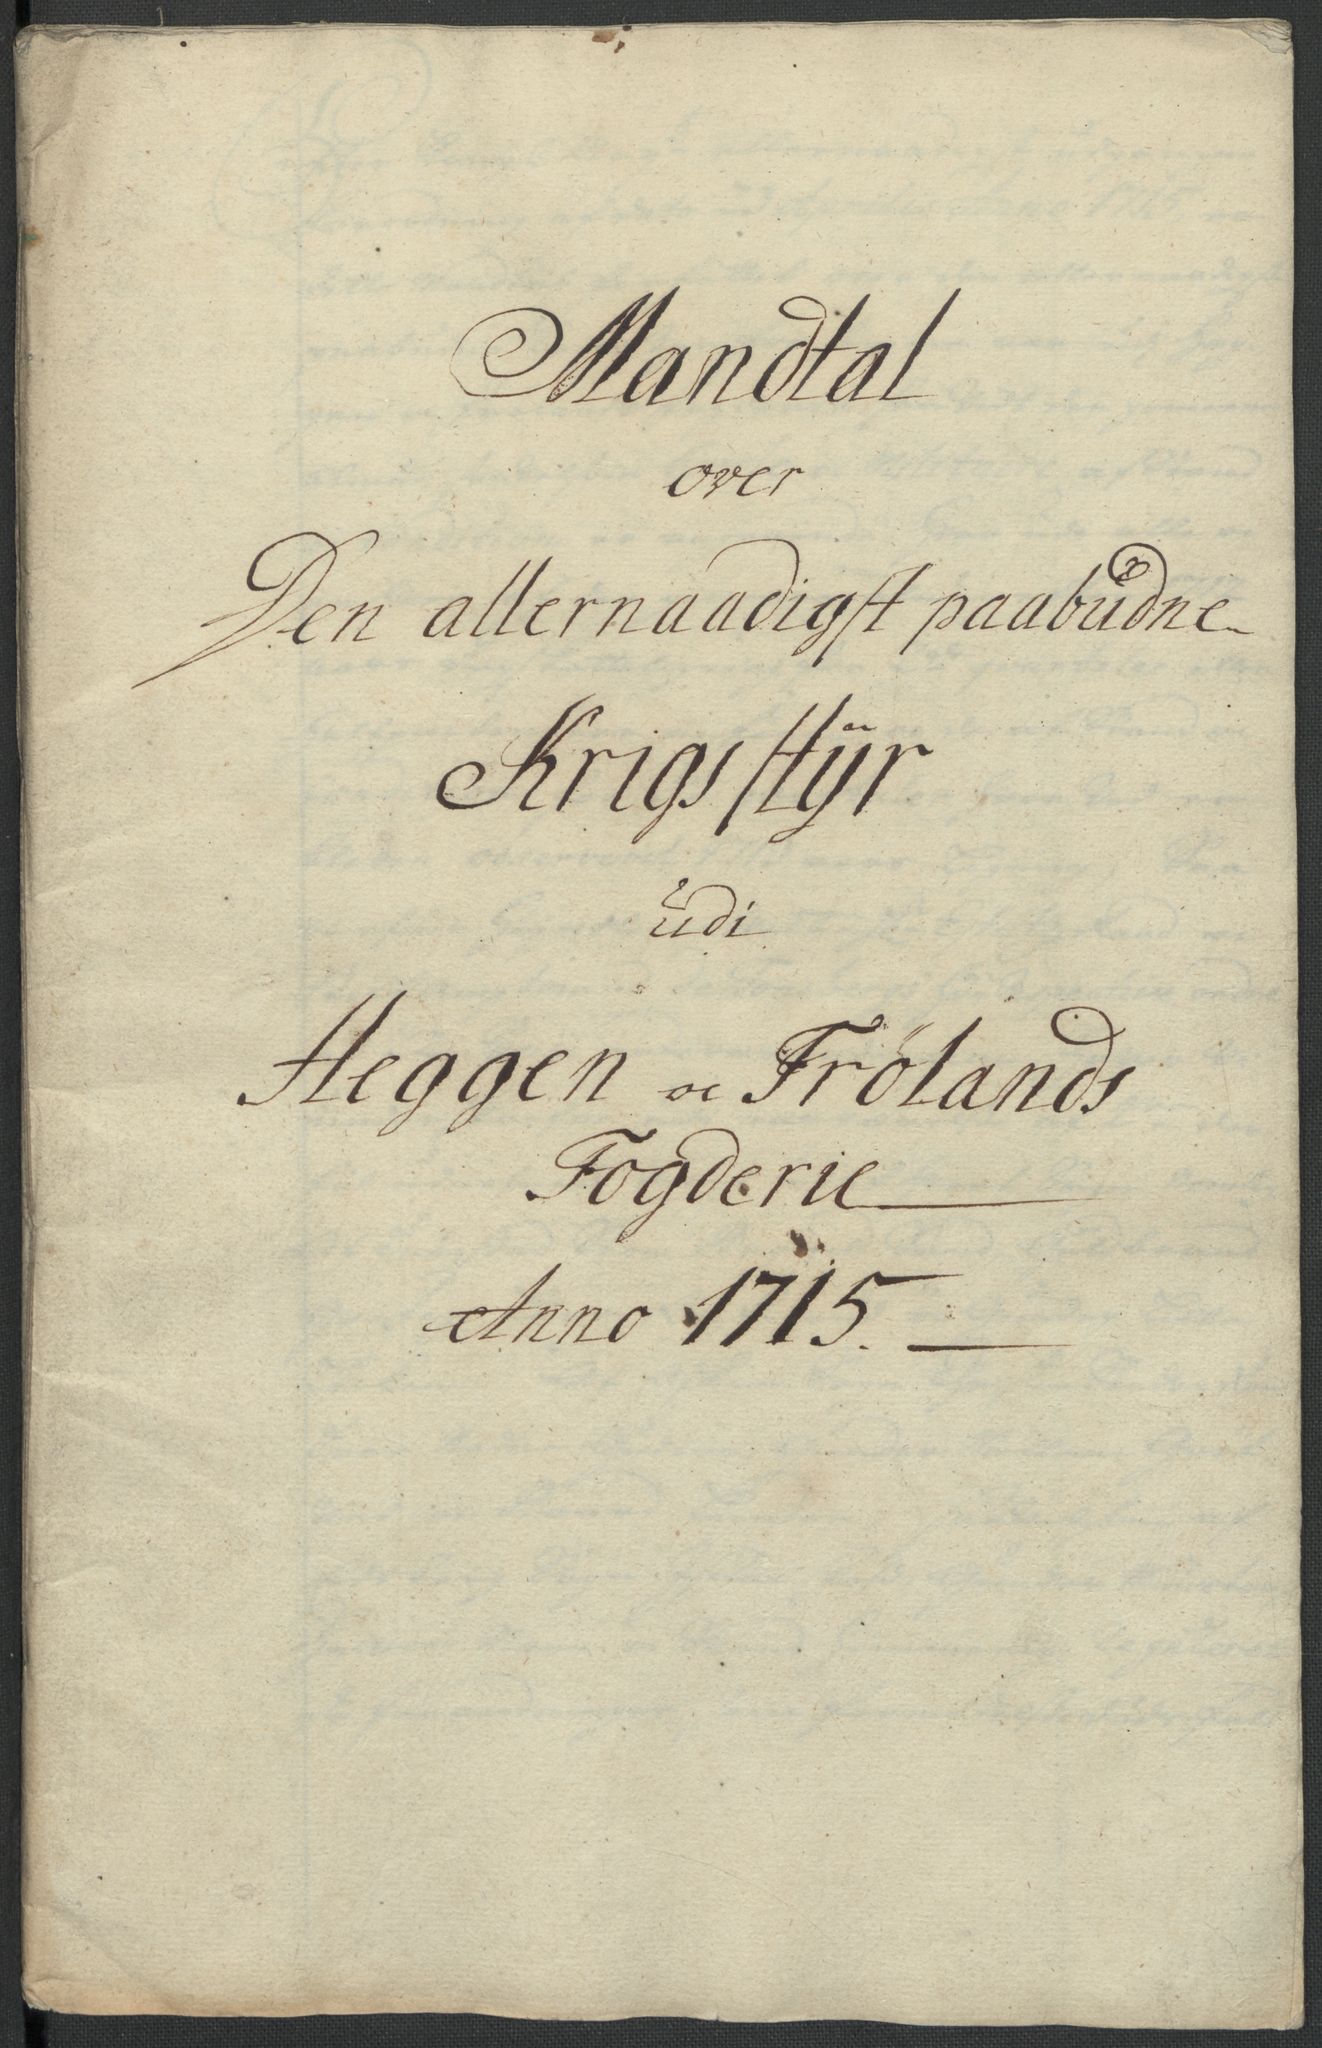 Mandtal
over
Den allernaadigst paabudne
Krigs Styr
udi
Heggen oc Frölands
Fogderie
Anno 1715.